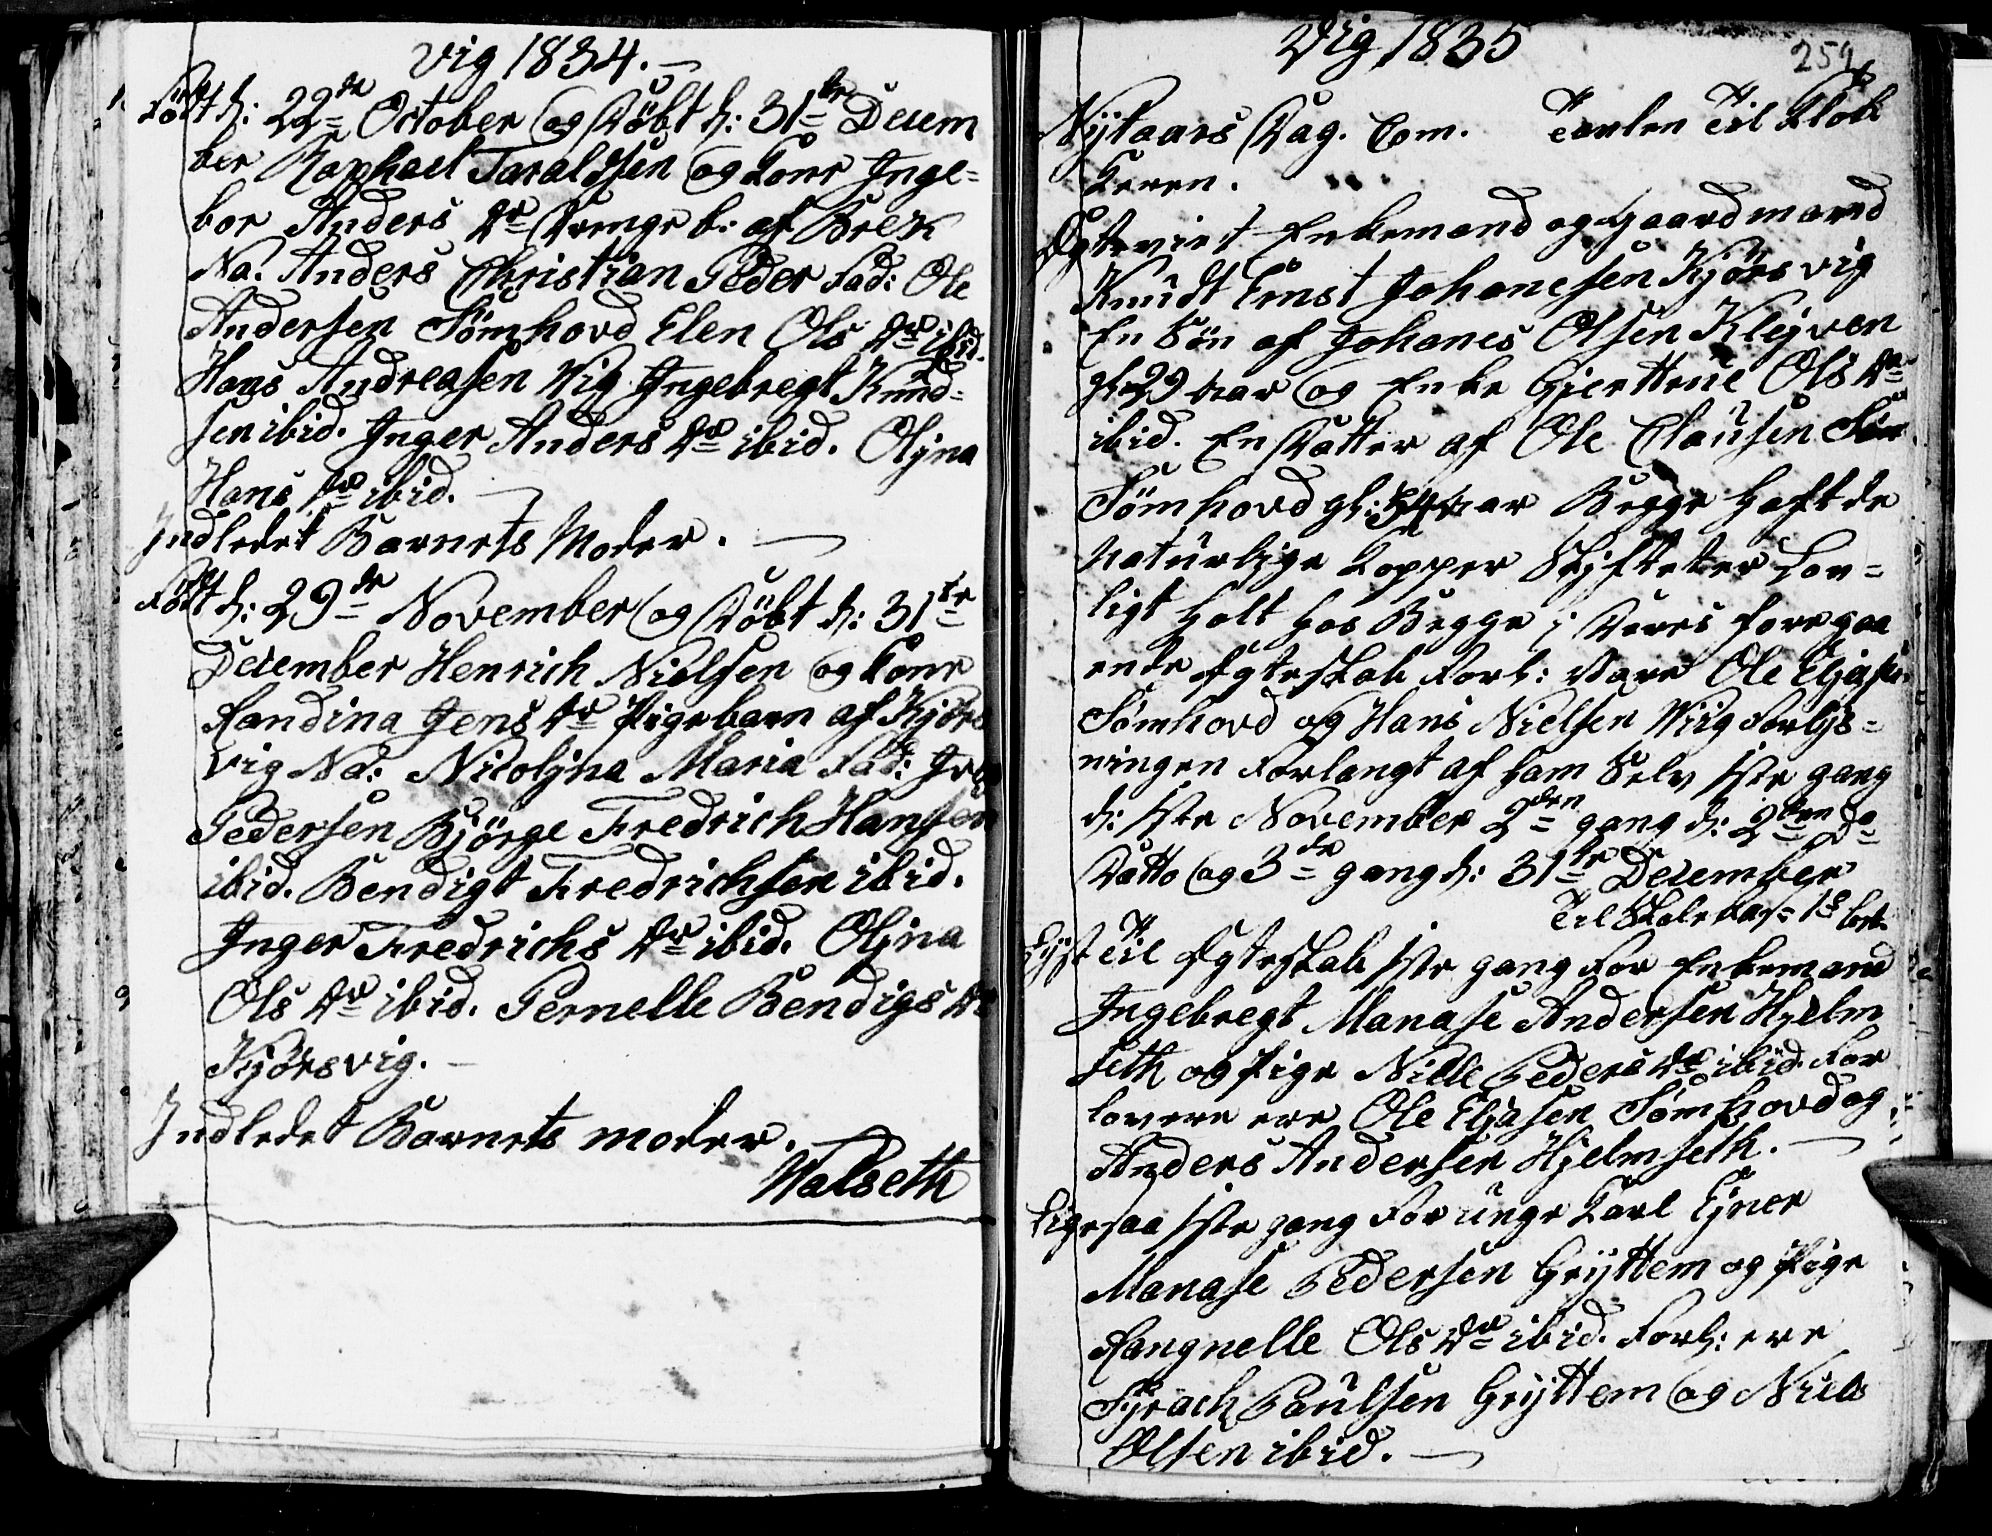 Vig 1834.
Født d: 22de October og Døbt d: 31te Decem
ber Raphael Taraldsen og Kone Inge-
bor Anders Dr Drenge b: af Brek
Na: Anders Christian Peder Fad: Ole
Andersen Sømhovd Elen Ols Dr ibid.
Hans Andreasen Wig Ingebregt Knud-
sen ibid. Inger Anders Dr ibid. Olina
Hans Dr ibid.
Indledet Barnets Moder.
Født d: 29de November og Døbt d: 31te
December Henrich Nielsen og Kone
Randina Jens Dr Pigebarn af Kjörs
vig Na: Nicolina Maria Fad:
Pedersen Bjørge Fredrich Hansen
ibid. Bendigt Fredrichsen ibid.
Inger Fredrichs Dr ibid. Olina
Ols Dr ibid. Pernelle Bendigs Dr
Kjörsvig.
Indledet Barnets moder.
Walseth
Vig 1835
252
Nytaars Dag. Com. Tavlen Til Klok
keren.
Egteviet Enkemand og Gaardmand
Knudt Ernst Johanesen Kjørsvig
En Søn af Johanes Olsen Klejven
gl: 29 aar og Enke Gjertrue Ols Dr
ibid. En Datter af Ole Clausen
Sömhovd gl: 34 aar Begge haft de
naturlige Kopper Skiftet er Lov-
ligt holt hos Begge i Deres foregaa
ende Egteskab Forl: Vare Ole Eliasen
Sømhovd og Hans Nielsen Wiig Forlys-
ningen Forlangt af ham Selv 1ste gang
d: 1ste November 2den gang d: 2den Do
Datto og 3de gang d: 31te December
Til Skolekas: 18 bet.
Lyst Til Egteskab 1ste gang For Enkemand
Ingebregt Manase Andersen Hjelm
seth og Pige Nille Peders Dr ibid. For
lovere ere Ole Eliasen Sömhovd og
Anders Andersen Hjelmseth.
Ligesaa 1ste gang For unge Karl Ejner
Manase Pedersen Gryttem og Pige
Rangnelle Ols Dr ibid. Forl: ere
Syrach Paulsen Gryttem og Niels
Olsen ibid.